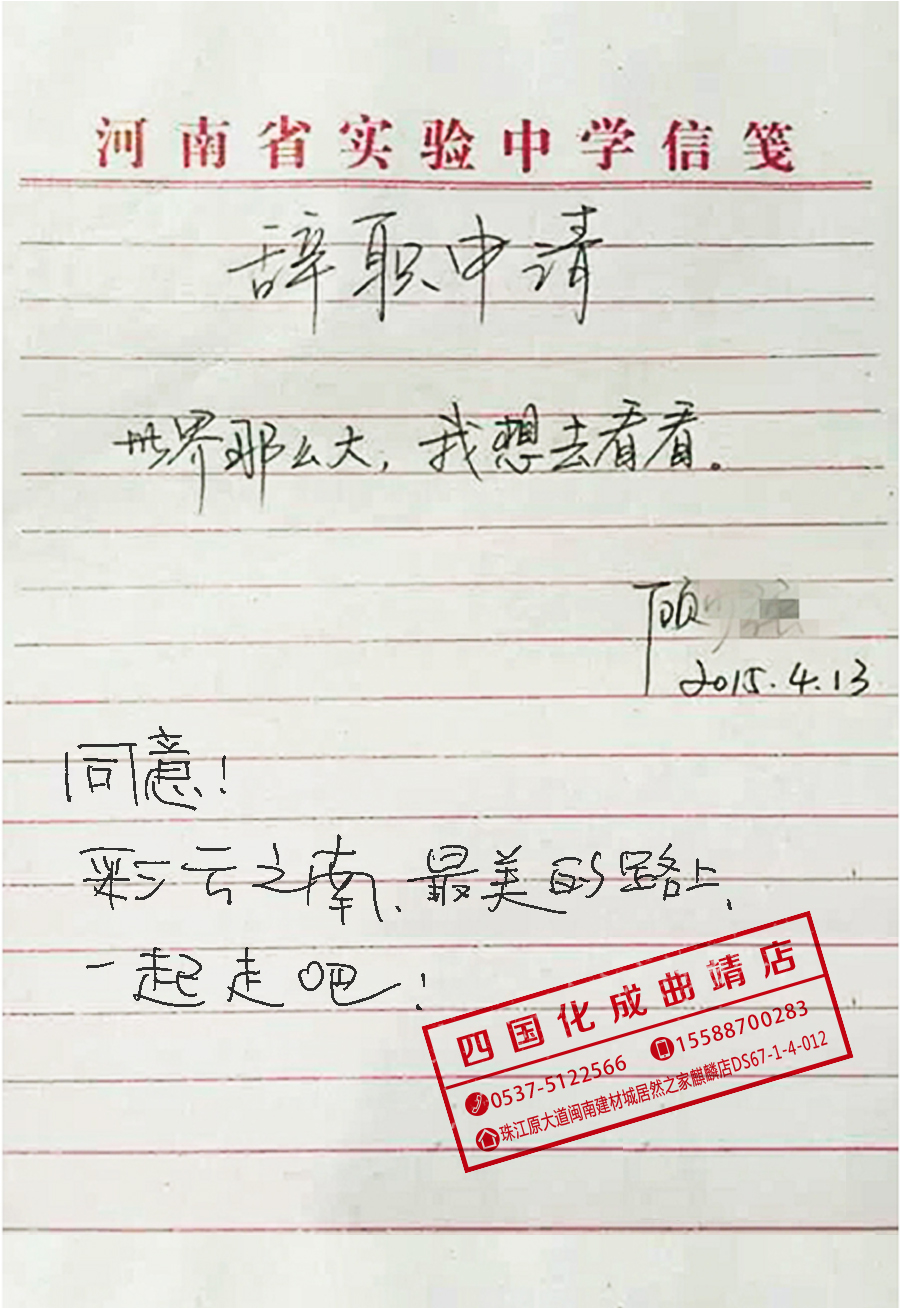 河南省实验中学信笺
辞职申请
世界那么大，我想去看看。
顾
2015.4.13
同意！
彩云之南、最美的路上，
一起走吧！
四国化成曲靖店
0537-5122566 15588700283
珠江原大道闽南建材城居然之家麒麟店DS67-1-4-012